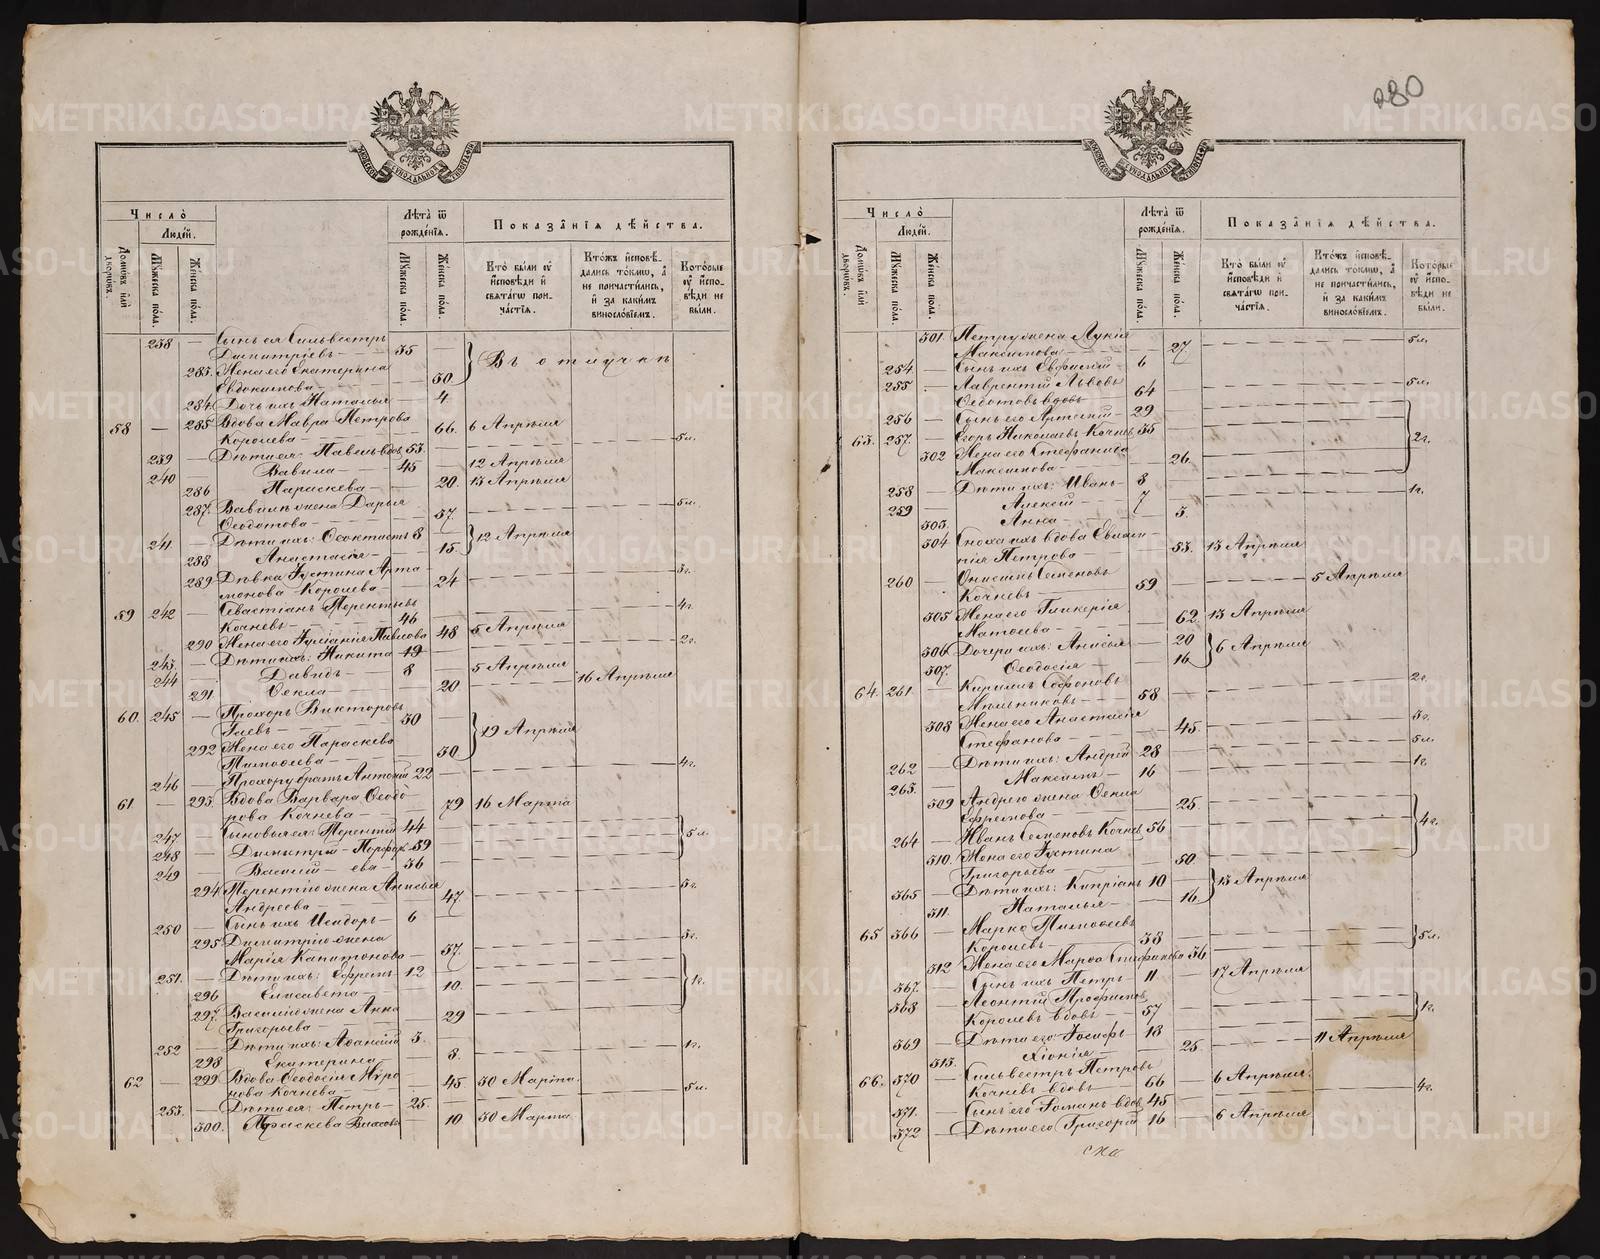 280
Число̀
Людей.
Домѡвъ или дворѡвъ.
Мꙋжеска пола.
Женска пола.
Лѣта̀ ѿ рожденїѧ.
Мꙋжеска пола.
Женска пола.
Показанїѧ дѣйства.
Кто̀ были ᲂу҆ исповѣди и свѧтагѡ причастїѧ.
Ктожъ исповѣдались токмѡ, а не причастились, и за какимъ винословїемъ.
Которые ᲂу҆ исповѣди не были.
238 — Сынъ ея Сильвестръ
Димитріевъ — 35 —
283. Жена его Екатерина
Евдокимова — 30. Въ отлучкѣ
284 Дочь ихъ Наталья — 4
58 — 285 Вдова Мавра Петрова
Королева — 66. 6 Апрѣля
239 — Дѣти ея: Павелъ вдовъ 53. 5л.
240 Вавила — 45 12 Апрѣля
286 Параскева — 20 13 Апрѣля
287. Вавилы жена Дарья
Ѳеодотова — 57. 5л.
241 — Дѣти ихъ: Ѳеоктистъ 8
288 Анастасія — 15. 12 Апрѣля
289 Дѣвка Іустина Арта-
монова Королева — 24 3г.
59 242 — Севастіанъ Терентьевъ
Кочневъ — 46 4г.
290 Жена его Іуліанія Павлова 48 5 Апрѣля
243. — Дѣти ихъ: Никита 19 2г.
244 Давидъ — 8 5 Апрѣля
291 Ѳекла — 20 16 Апрѣля
60. 245 — Прохоръ Викторовъ
— 50
292 Жена его Параскева
Тимоѳеева — 50. 19 Апрѣля
246 — Прохору братъ Антоній 22 4г.
61 — 293. Вдова Варвара Ѳеодо-
рова Кочнева — 79 16 Марта
247 — Сыновья ея: Терентій 44
248 — Димитрій — 39 5л.
249 — Василій — 36
294 Терентію жена Анисья
Андреева — 47. 5г.
250 — Сынъ ихъ Исидоръ — 6
295 Димитрію жена
Марія Капитонова — 37. 3г.
251. — Дѣти ихъ: Ефремъ — 12
296 Елисавета — 10. 1г.
297. Василію жена Анна
Григорьева — 29
252 — Дѣти ихъ: Аѳанасій 3.
298 Екатерина — 8. 1г.
62 — 299 Вдова Ѳеодосія Миро-
нова Кочнева — 45. 30 Марта.
253. — Дѣти ея: Петръ — 25. 5л.
300. Параскева Власова — 10 30 Марта.
Число̀
Людей.
Домѡвъ или дворѡвъ.
Мꙋжеска пола.
Женска пола.
Лѣта̀ ѿ рожденїѧ.
Мꙋжеска пола.
Женска пола.
Показанїѧ дѣйства.
Кто̀ были ᲂу҆ исповѣди и свѧтагѡ причастїѧ.
Ктожъ исповѣдались токмѡ, а не причастились, и за какимъ винословїемъ.
Которые ᲂу҆ исповѣди не были.
301 Петру жена Лукія
Максимова — 27. 5л.
254 — Сынъ ихъ — 6
255 — Лаврентій Львовъ
Ѳедотовъ вдовъ 64 5л.
256 — Сынъ его — 29
63. 257. — Егоръ Николаевъ Кочневъ 35
302 Жена его Стефанида
Максимова — 26. 2г.
258 — Дѣти ихъ: Иванъ — 8
259 — Алексій — 7 1г.
303. Анна — 3.
304 Сноха ихъ вдова Евлам-
пія Петрова — 53. 13 Апрѣля
260 — Онисимъ Семеновъ
Кочневъ — 59 5 Апрѣля
305 Жена его Гликерія
Матѳеева — 62 13 Апрѣля
306 Дочери ихъ: Анисья 20
307. Ѳеодосія — 16. 6 Апрѣля
64. 261. — Кириллъ Софоновъ
Мыльниковъ — 58 2г.
308 Жена его Анастасія
Стефанова — 45. 3г.
262 — Дѣти ихъ: Андрей — 28 5л.
263. — Максимъ — 16 1г.
309 Андрею жена Ѳекла
Ефремова — 25.
264 — Иванъ Семеновъ Кочневъ 56 4г.
310. Жена его Іустина
Григорьева — 50.
365 — Дѣти ихъ: Кипріанъ 10 —
311. Наталья — 16. 13 Апрѣля
65 366 — Марко Тимоѳеевъ
Королевъ — 38 5л.
312 Жена его Марѳа Стефанова 36
367. — Сынъ ихъ Петръ — 11 17 Апрѣля
368 — Леонтій Трофимовъ
Королевъ вдовъ — 57 1г.
369 — Дѣти его: Іосифъ — 18
313. Хіонія — 25. 11 Апрѣля
66. 370 — Сильвестръ Петровъ
Кочневъ вдовъ — 66 6 Апрѣля.
371. — Сынъ его Романъ вдовъ 45 4г.
372 — Дѣти его Григорій 16 6 Апрѣля